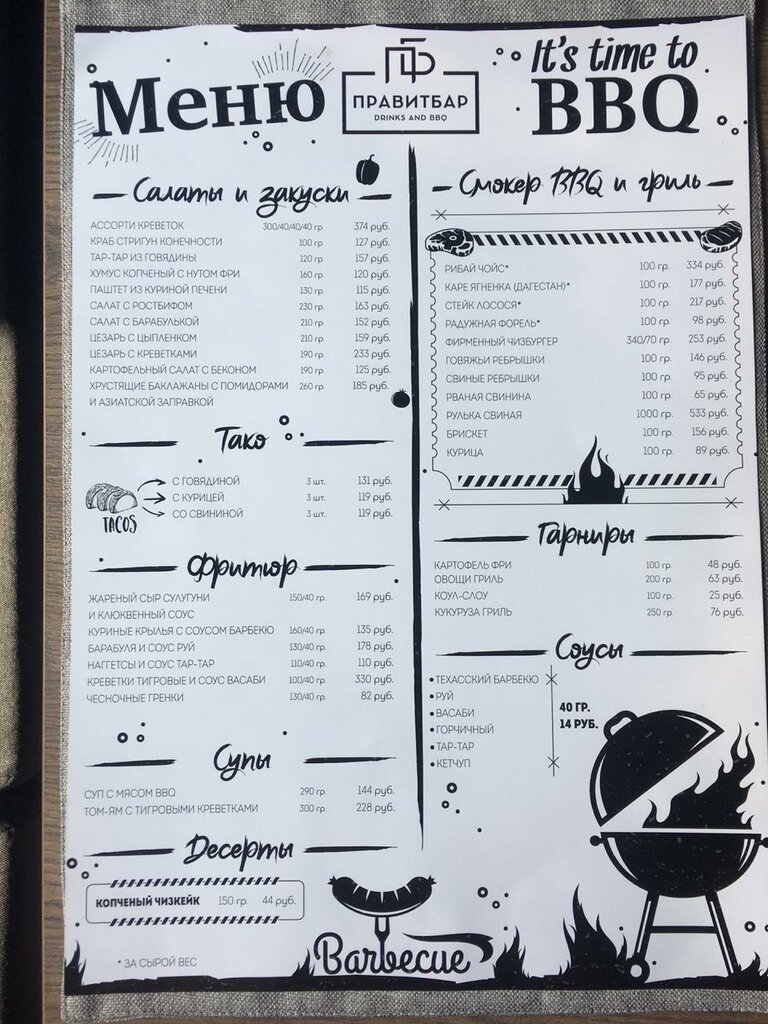 Меню
ПБ
ПРАВИТБАР
DRINKS AND BBQ
It's time to
BBQ
Салаты и закуски
АССОРТИ КРЕВЕТОК 300/40/40/40 гр. 374 руб.
КРАБ СТРИГУН КОНЕЧНОСТИ 100 гр. 127 руб.
ТАР-ТАР ИЗ ГОВЯДИНЫ 120 гр. 157 руб.
ХУМУС КОПЧЕНЫЙ С НУТОМ ФРИ 160 гр. 120 руб.
ПАШТЕТ ИЗ КУРИНОЙ ПЕЧЕНИ 130 гр. 115 руб.
САЛАТ С РОСТБИФОМ 230 гр. 163 руб.
САЛАТ С БАРАБУЛЬКОЙ 210 гр. 152 руб.
ЦЕЗАРЬ С ЦЫПЛЕНКОМ 210 гр. 159 руб.
ЦЕЗАРЬ С КРЕВЕТКАМИ 190 гр. 233 руб.
КАРТОФЕЛЬНЫЙ САЛАТ С БЕКОНОМ 190 гр. 125 руб.
ХРУСТЯЩИЕ БАКЛАЖАНЫ С ПОМИДОРАМИ 260 гр. 185 руб.
И АЗИАТСКОЙ ЗАПРАВКОЙ
Тако
TACOS
С ГОВЯДИНОЙ 3 шт. 131 руб.
С КУРИЦЕЙ 3 шт. 119 руб.
СО СВИНИНОЙ 3 шт. 119 руб.
Фритюр
ЖАРЕНЫЙ СЫР СУЛУГУНИ 150/40 гр. 169 руб.
И КЛЮКВЕННЫЙ СОУС
КУРИНЫЕ КРЫЛЬЯ С СОУСОМ БАРБЕКЮ 160/40 гр. 135 руб.
БАРАБУЛЯ И СОУС РУЙ 130/40 гр. 178 руб.
НАГГЕТСЫ И СОУС ТАР-ТАР 110/40 гр. 110 руб.
КРЕВЕТКИ ТИГРОВЫЕ И СОУС ВАСАБИ 100/40 гр. 330 руб.
ЧЕСНОЧНЫЕ ГРЕНКИ 130/40 гр. 82 руб.
Супы
СУП С МЯСОМ BBQ 290 гр. 144 руб.
ТОМ-ЯМ С ТИГРОВЫМИ КРЕВЕТКАМИ 300 гр. 228 руб.
Десерты
КОПЧЕНЫЙ ЧИЗКЕЙК 150 гр. 44 руб.
* ЗА СЫРОЙ ВЕС
Смокер BBQ и гриль
РИБАЙ ЧОЙС* 100 гр. 334 руб.
КАРЕ ЯГНЕНКА (ДАГЕСТАН)* 100 гр. 177 руб.
СТЕЙК ЛОСОСЯ* 100 гр. 217 руб.
РАДУЖНАЯ ФОРЕЛЬ* 100 гр. 98 руб.
ФИРМЕННЫЙ ЧИЗБУРГЕР 340/70 гр. 253 руб.
ГОВЯЖЬИ РЕБРЫШКИ 100 гр. 146 руб.
СВИНЫЕ РЕБРЫШКИ 100 гр. 95 руб.
РВАНАЯ СВИНИНА 100 гр. 65 руб.
РУЛЬКА СВИНАЯ 1000 гр. 533 руб.
БРИСКЕТ 100 гр. 156 руб.
КУРИЦА 100 гр. 89 руб.
Гарниры
КАРТОФЕЛЬ ФРИ 100 гр. 48 руб.
ОВОЩИ ГРИЛЬ 200 гр. 63 руб.
КОУЛ-СЛОУ 100 гр. 25 руб.
КУКУРУЗА ГРИЛЬ 250 гр. 76 руб.
Соусы
• ТЕХАССКИЙ БАРБЕКЮ
• РУЙ
• ВАСАБИ
• ГОРЧИЧНЫЙ
• ТАР-ТАР
• КЕТЧУП
40 ГР.
14 РУБ.
Barbecue